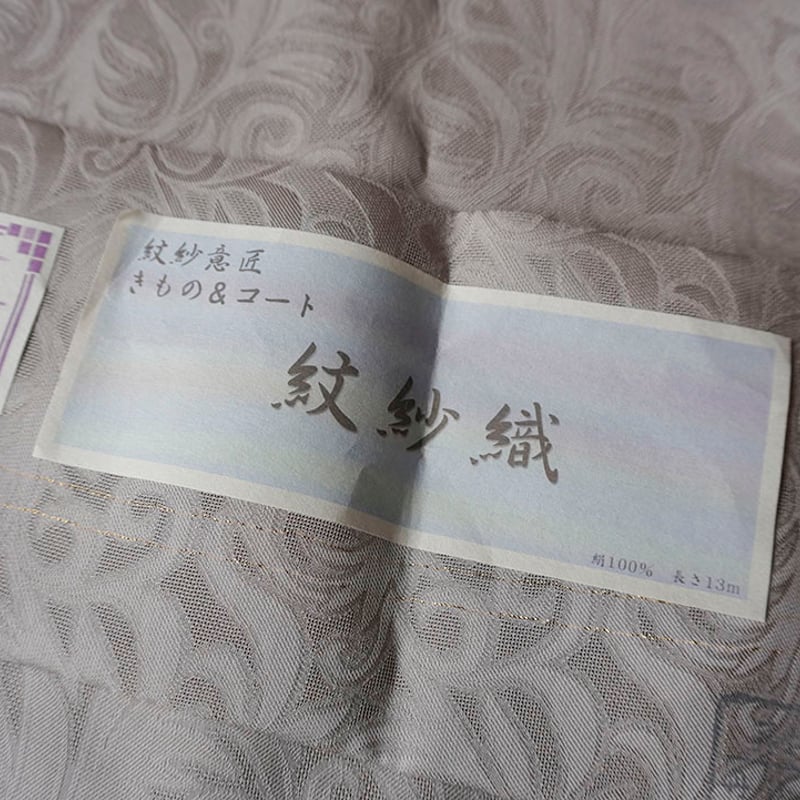 紋紗意匠
きもの&コート
紋紗織
絹100% 長さ13m